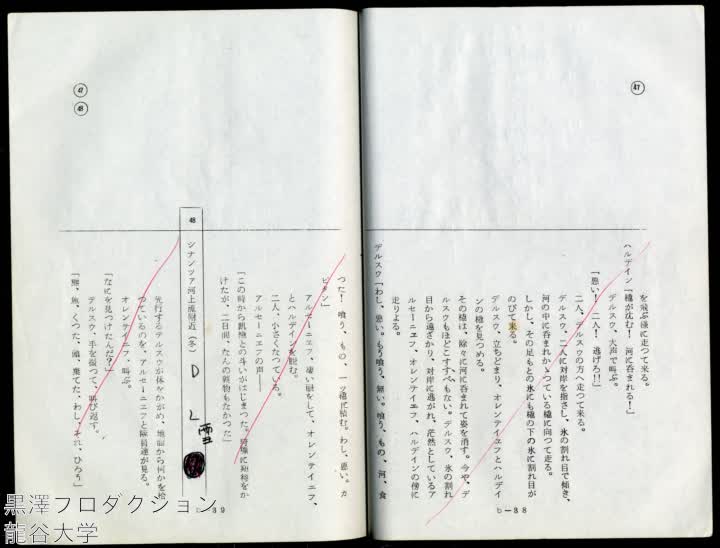 ㊼
を飛ぶ様に走つて来る。
ハルデイン「橇が沈む! 河に呑まれる!」
デルスウ、大声で叫ぶ。
「悪い! 二人! 逃げろ!!」
二人、デルスウの方へ走つて来る。
デルスウ、二人に対岸を指さし、氷の割れ目で傾き、
河の中に呑まれかゝつている橇に向つて走る。
しかし、その足もとの氷にも橇の下の氷に割れ目が
のびて来る。
デルスウ、立ちどまり、オレンテイエフとハルデイ
ンの橇を見つめる。
その橇は、除々に河に呑まれて姿を消す。今や、デ
ルスウもほどこすすべもない。デルスウ、氷の割れ
目から遠ざかり、対岸に逃がれ、茫然としているア
ルセーニエフ、オレンテイエフ、ハルデインの傍に
走りよる。
デルスウ「わし、悪い。もう喰う、無い。喰う、もの、河、食
b－38
㊼
㊽
つた! 喰う、もの、一ツ橇に積む。わし、悪い。カ
ピタン」
アルセーニエフ、凄い眼をして、オレンテイエフ、
とハルデインを睨む。
二人、小さくなつている。
アルセーニエフの声――
「この時から飢餓との斗いがはじまつた。
けたが、二日間、なんの獲物もなかつた」
48 シナンツア河上流附近（冬） D L 雪
先行するデルスウが体をかがめ、地面から何かを拾
つているのを、アルセーニエフと隊員達が見る。
オレンテイエフ、叫ぶ。
「なにを見つけたんだ?」
デルスウ、手を振つて、叫び返す。
「熊、魚、くつた、頭、棄てた、わし、それ、ひろう」
39
黒澤プロダクション
龍谷大学